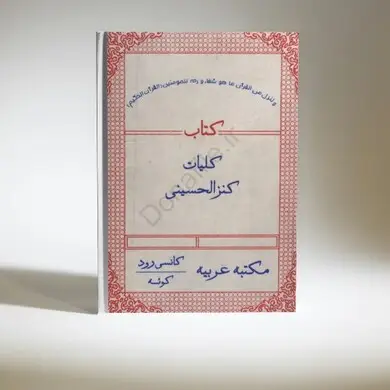 وننزل من القرآن ما هو شفاء و رحمة للمؤمنين (القرآن الحكيم)
کتاب
کلیات
کنزالحسینی
مکتبه عربیه
کانسی رود
کوئٹہ